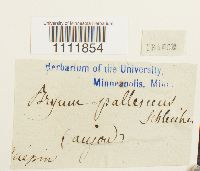 University of Minnesota Herbarium
1111854
Herbarium of the University,
Minneapolis, Minn.
Bryum pallescens
Schleicher
(anjou)